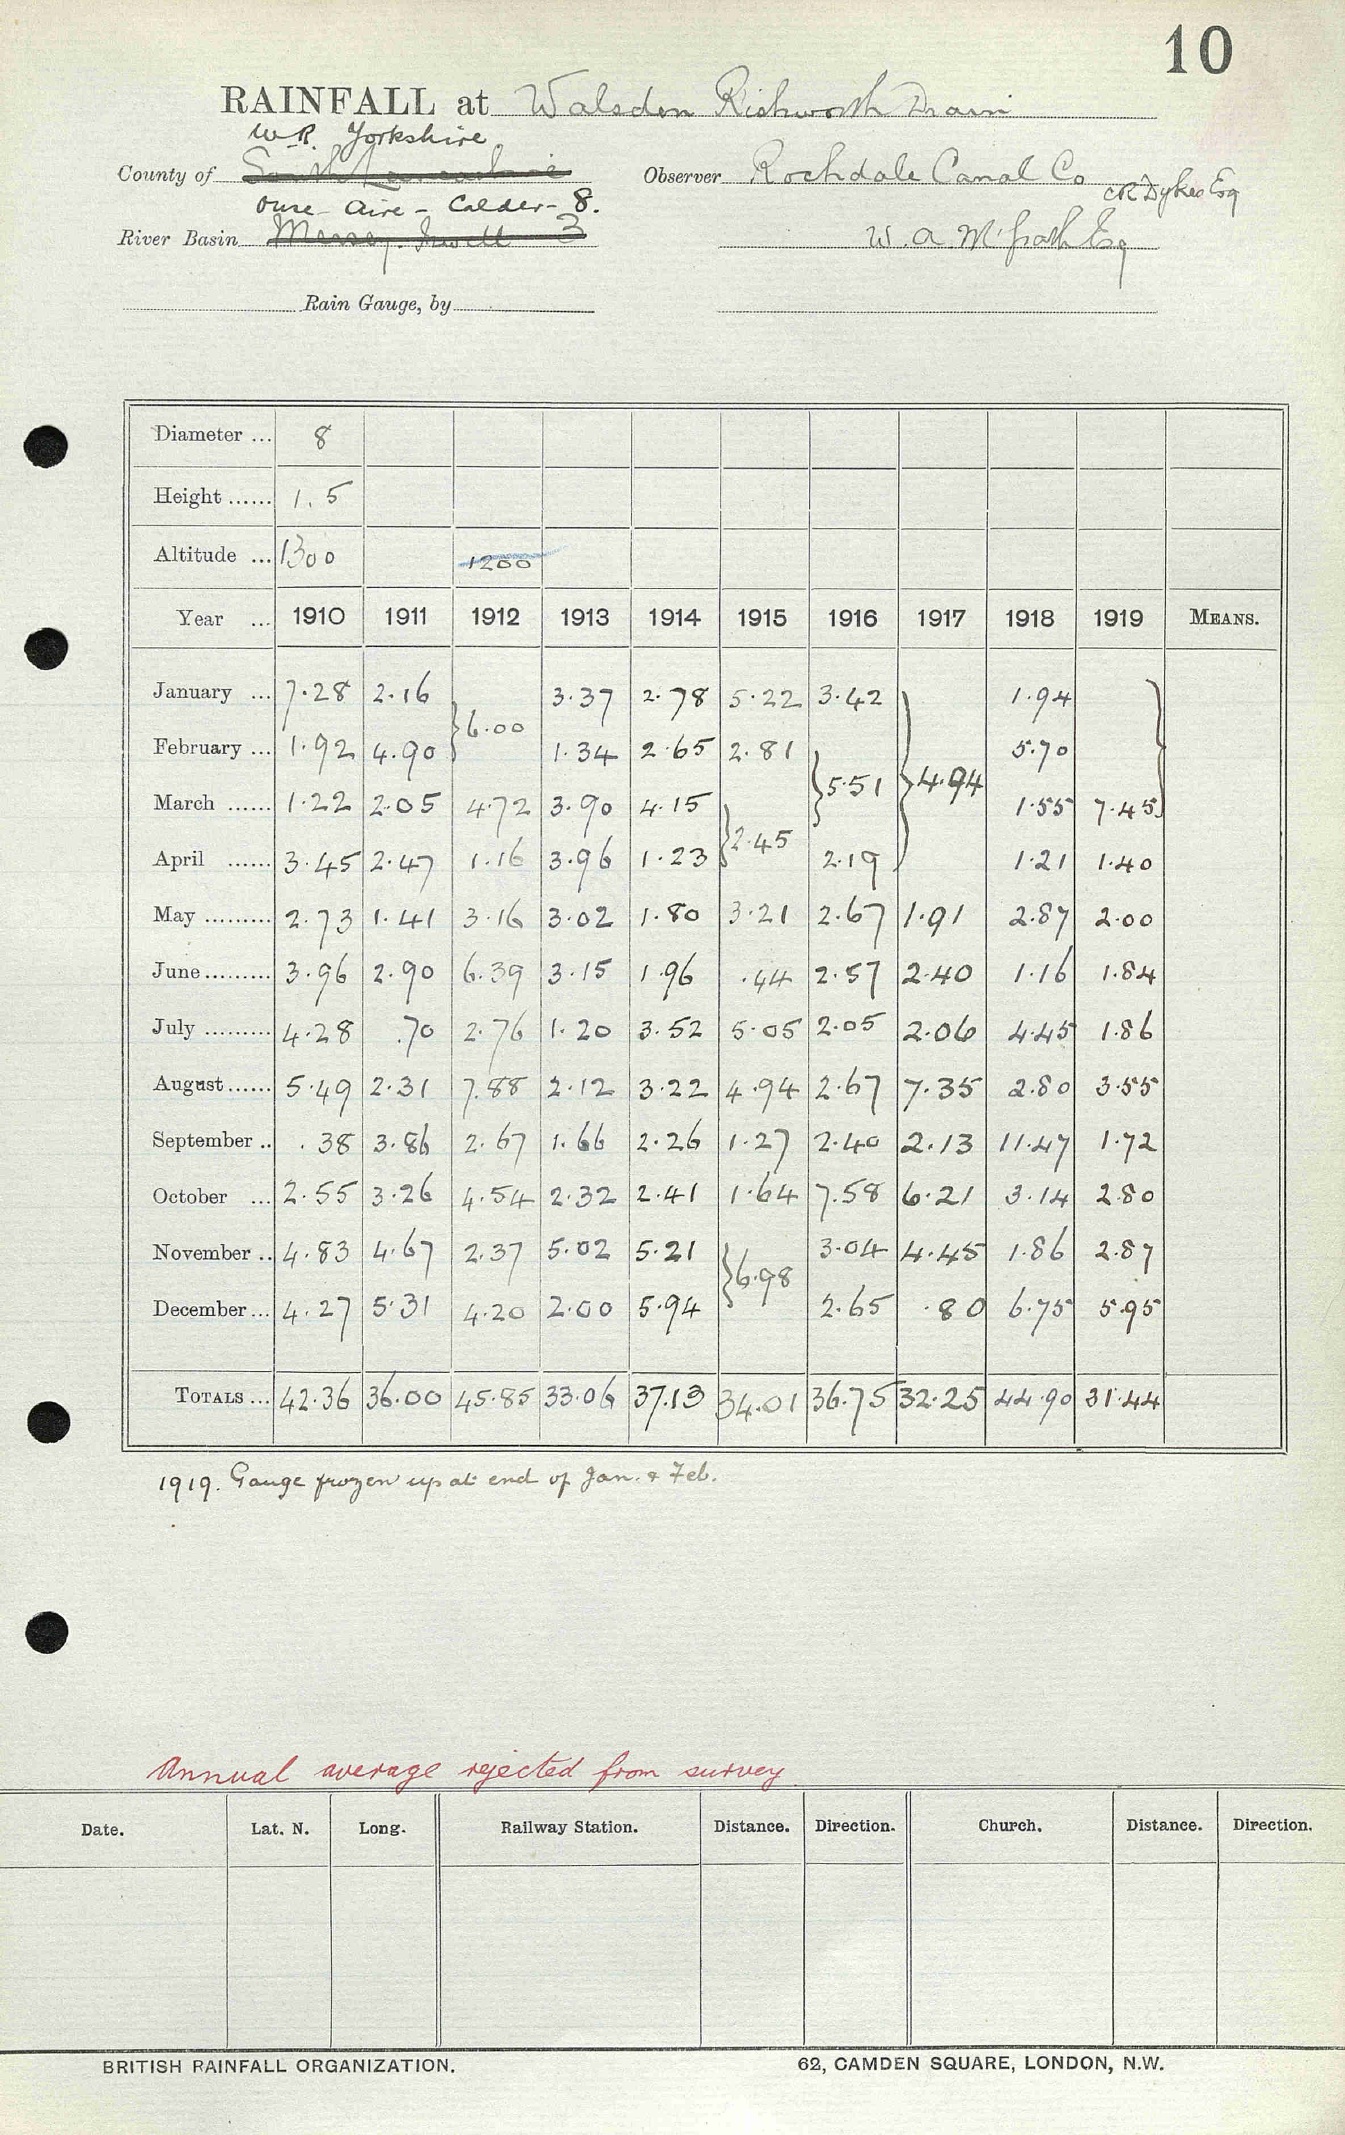 10
RAINFALL at Walsden Rishworth Drain
W.R. Yorkshire
County of South Lancashire Observer Rochdale Canal Co CR Dykes Esq
Ouse - Aire - Calder - 8.
River Basin Mersey. Irwell 3 W. A. McGrath Esq
Rain Gauge, by
Diameter ... 8
Height ...... 1.5
Altitude ... 1300 1200
Year ... 1910 1911 1912 1913 1914 1915 1916 1917 1918 1919 MEANS.
January ... 7.28 2.16 3.37 2.78 5.22 3.42 1.94
} 6.00
February ... 1.92 4.90 1.34 2.65 2.81 5.70
} 5.51 } 4.94
March ...... 1.22 2.05 4.72 3.90 4.15 1.55 7.45 }
} 2.45
April ...... 3.45 2.47 1.16 3.96 1.23 2.19 1.21 1.40
May ......... 2.73 1.41 3.16 3.02 1.80 3.21 2.67 1.91 2.87 2.00
June ......... 3.96 2.90 6.39 3.15 1.96 .44 2.57 2.40 1.16 1.84
July ......... 4.28 .70 2.76 1.20 3.52 5.05 2.05 2.06 4.45 1.86
August ...... 5.49 2.31 7.88 2.12 3.22 4.94 2.67 7.35 2.80 3.55
September .. .38 3.86 2.67 1.66 2.26 1.27 2.40 2.13 11.47 1.72
October ... 2.55 3.26 4.54 2.32 2.41 1.64 7.58 6.21 3.14 2.80
November .. 4.83 4.67 2.37 5.02 5.21 3.04 4.45 1.86 2.87
} 6.98
December ... 4.27 5.31 4.20 2.00 5.94 2.65 .80 6.75 5.95
TOTALS ... 42.36 36.00 45.85 33.06 37.13 34.01 36.75 32.25 44.90 31.44
1919. Gauge frozen up at end of Jan. & Feb.
Annual average rejected from survey
Date. Lat. N. Long. Railway Station. Distance. Direction. Church. Distance. Direction.
BRITISH RAINFALL ORGANIZATION. 62, CAMDEN SQUARE, LONDON, N.W.